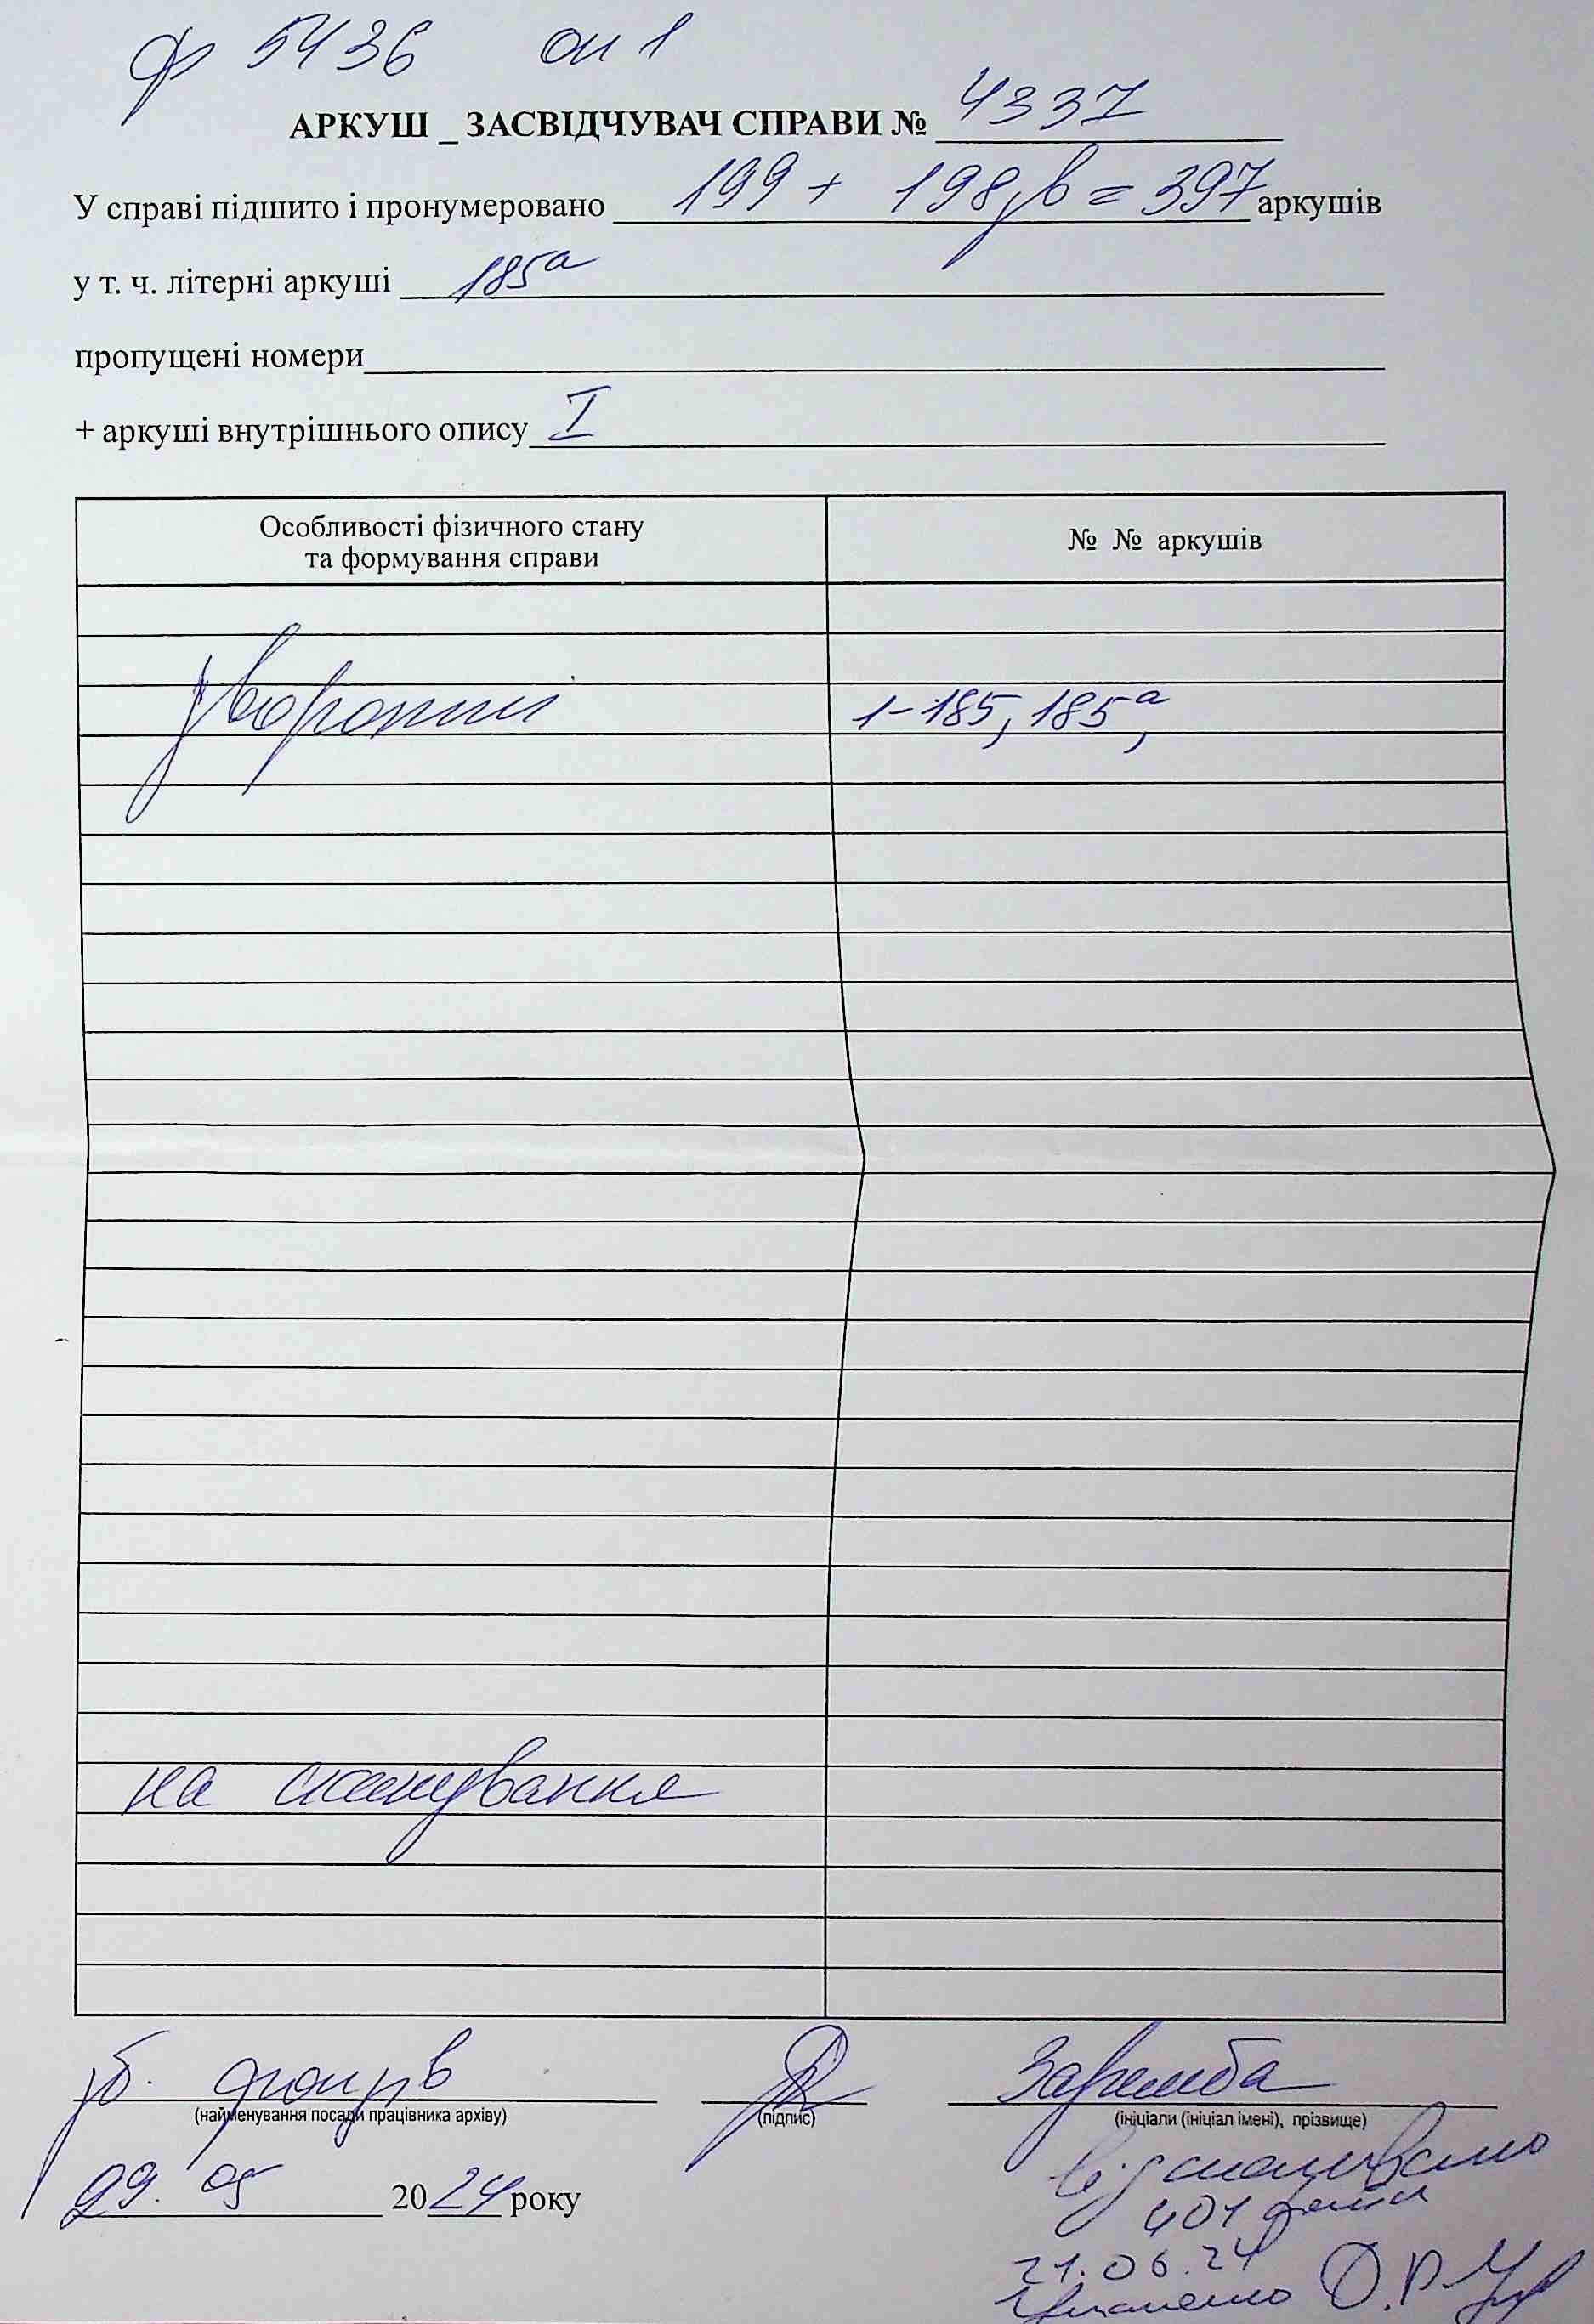 ф 5436 оп 1
АРКУШ _ ЗАСВІДЧУВАЧ СПРАВИ № 4337
У справі підшито і пронумеровано 199 + 198 зв = 397 аркушів
у т. ч. літерні аркуші 185а
пропущені номери
+ аркуші внутрішнього опису I
Особливості фізичного стану та формування справи
№ № аркушів
1-185, 185а,
на сканування
Заремба
(найменування посади працівника архіву) (підпис) (ініціали (ініціал імені), прізвище)
29. 05 2024 року
відскановано
401 файл
21.06.24